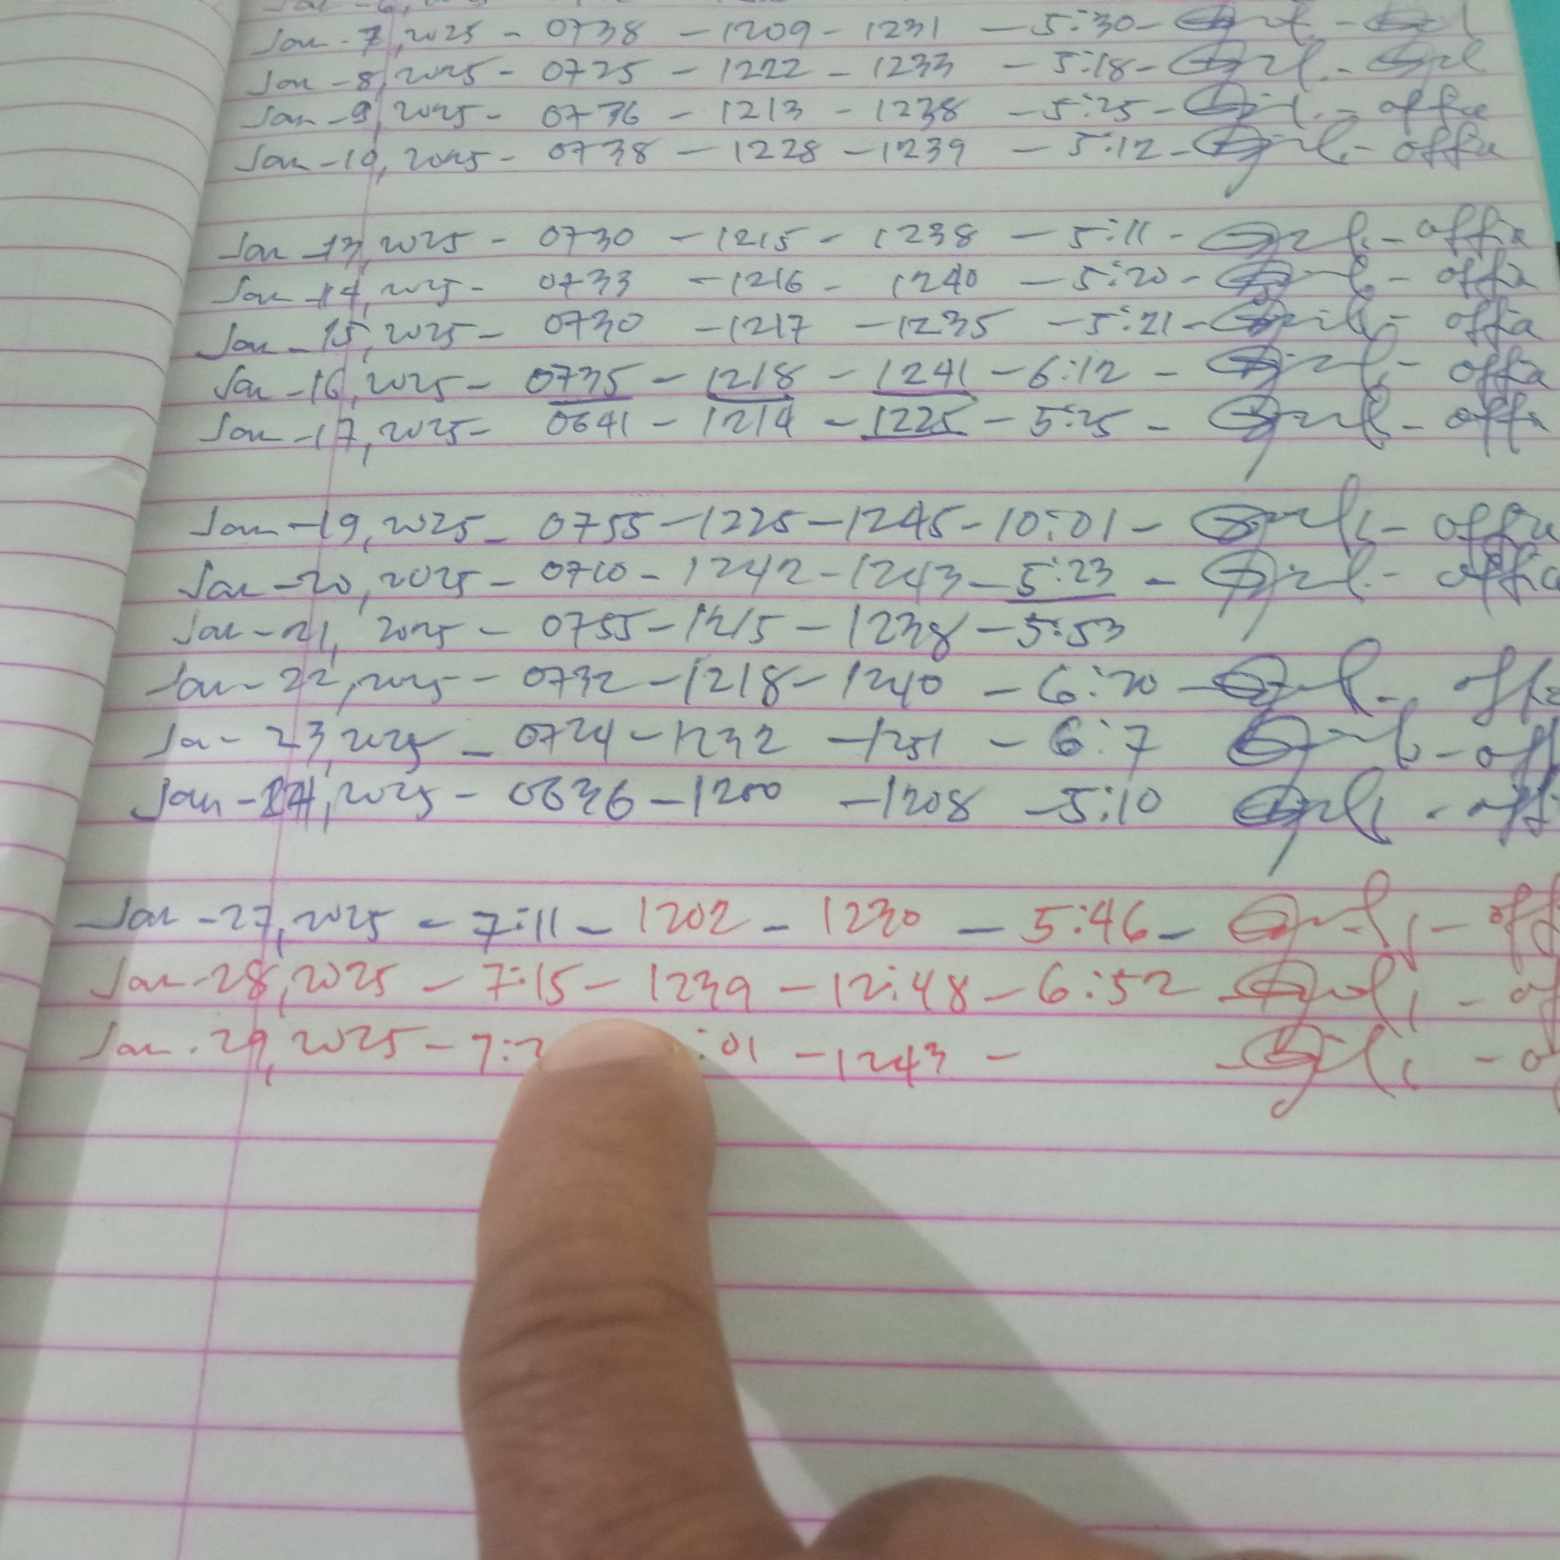 Jan - 7, 2025 - 0738 - 1209 - 1231 - 5:30 -
Jan - 8, 2025 - 0725 - 1222 - 1233 - 5:18 -
Jan - 9, 2025 - 0736 - 1213 - 1238 - 5:25 - office
Jan - 10, 2025 - 0738 - 1228 - 1239 - 5:12 - office
Jan - 13, 2025 - 0730 - 1215 - 1238 - 5:11 - office
Jan - 14, 2025 - 0733 - 1216 - 1240 - 5:20 - office
Jan - 15, 2025 - 0730 - 1217 - 1235 - 5:21 - office
Jan - 16, 2025 - 0735 - 1218 - 1241 - 6:12 - office
Jan - 17, 2025 - 0641 - 1214 - 1225 - 5:25 - office
Jan - 19, 2025 - 0755 - 1225 - 1245 - 10:01 - office
Jan - 20, 2025 - 0710 - 1242 - 1243 - 5:23 - office
Jan - 21, 2025 - 0755 - 1215 - 1238 - 5:53
Jan - 22, 2025 - 0732 - 1218 - 1240 - 6:20 - offi
Jan - 23, 2025 - 0724 - 1232 - 1251 - 6:7 - off
Jan - 24, 2025 - 0636 - 1200 - 1208 - 5:10 - off
Jan - 27, 2025 - 7:11 - 1202 - 1230 - 5:46 - off
Jan - 28, 2025 - 7:15 - 1239 - 12:48 - 6:52 - of
Jan - 29, 2025 - 7:2 :01 - 1243 - - o